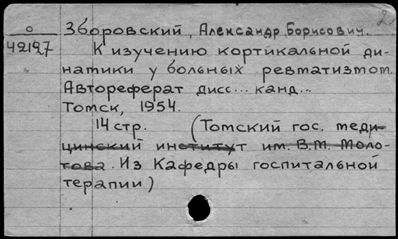 2
О
42127
Зборовский, Александр Борисович.
К изучению кортикальной ди-
намики у больных ревматизмом.
Автореферат дисс... канд...
Томск, 1954.
14 стр. (Томский гос. меди-
цинский институт им. В.М. Моло-
това. Из Кафедры госпитальной
терапии)